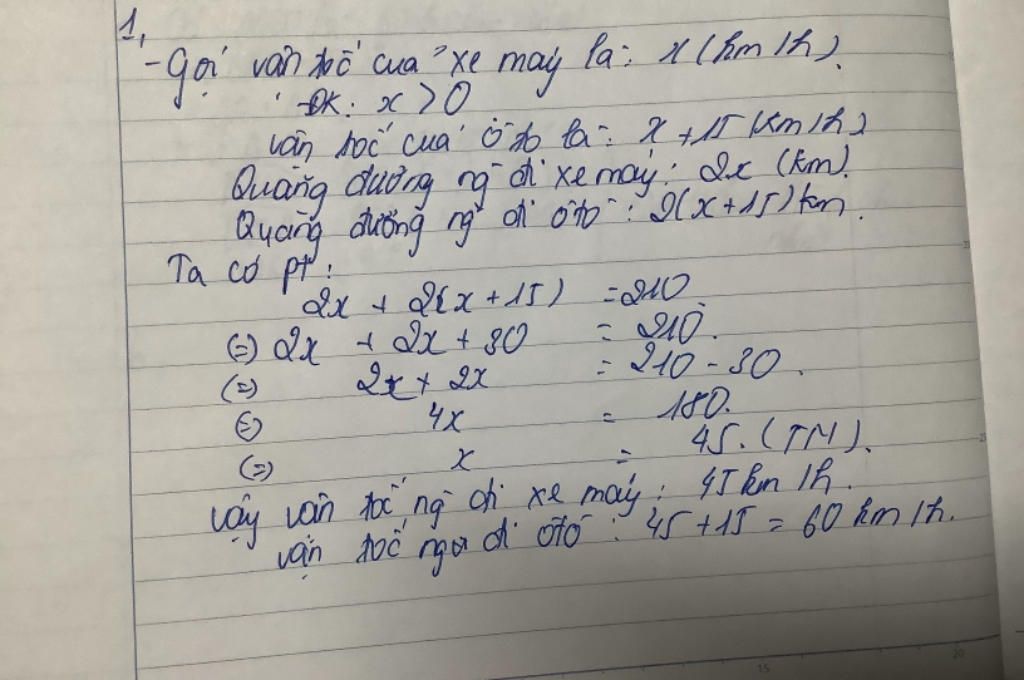 1,
- Gọi vận tốc của xe máy là: x (km/h).
ĐK: x > 0
Vận tốc của ô tô là: x + 15 (km/h)
Quãng đường ng đi xe máy: 2x (km).
Quãng đường ng đi ôtô: 2(x+15) km.
Ta có pt:
2x + 2(x + 15) = 210
(=) 2x + 2x + 30 = 210.
(=) 2x + 2x = 210 - 30.
(=) 4x = 180.
(=) x = 45. (TM).
Vậy vận tốc ng đi xe máy: 45 km/h.
vận tốc ngơ đi ôtô: 45 + 15 = 60 km/h.
15
20